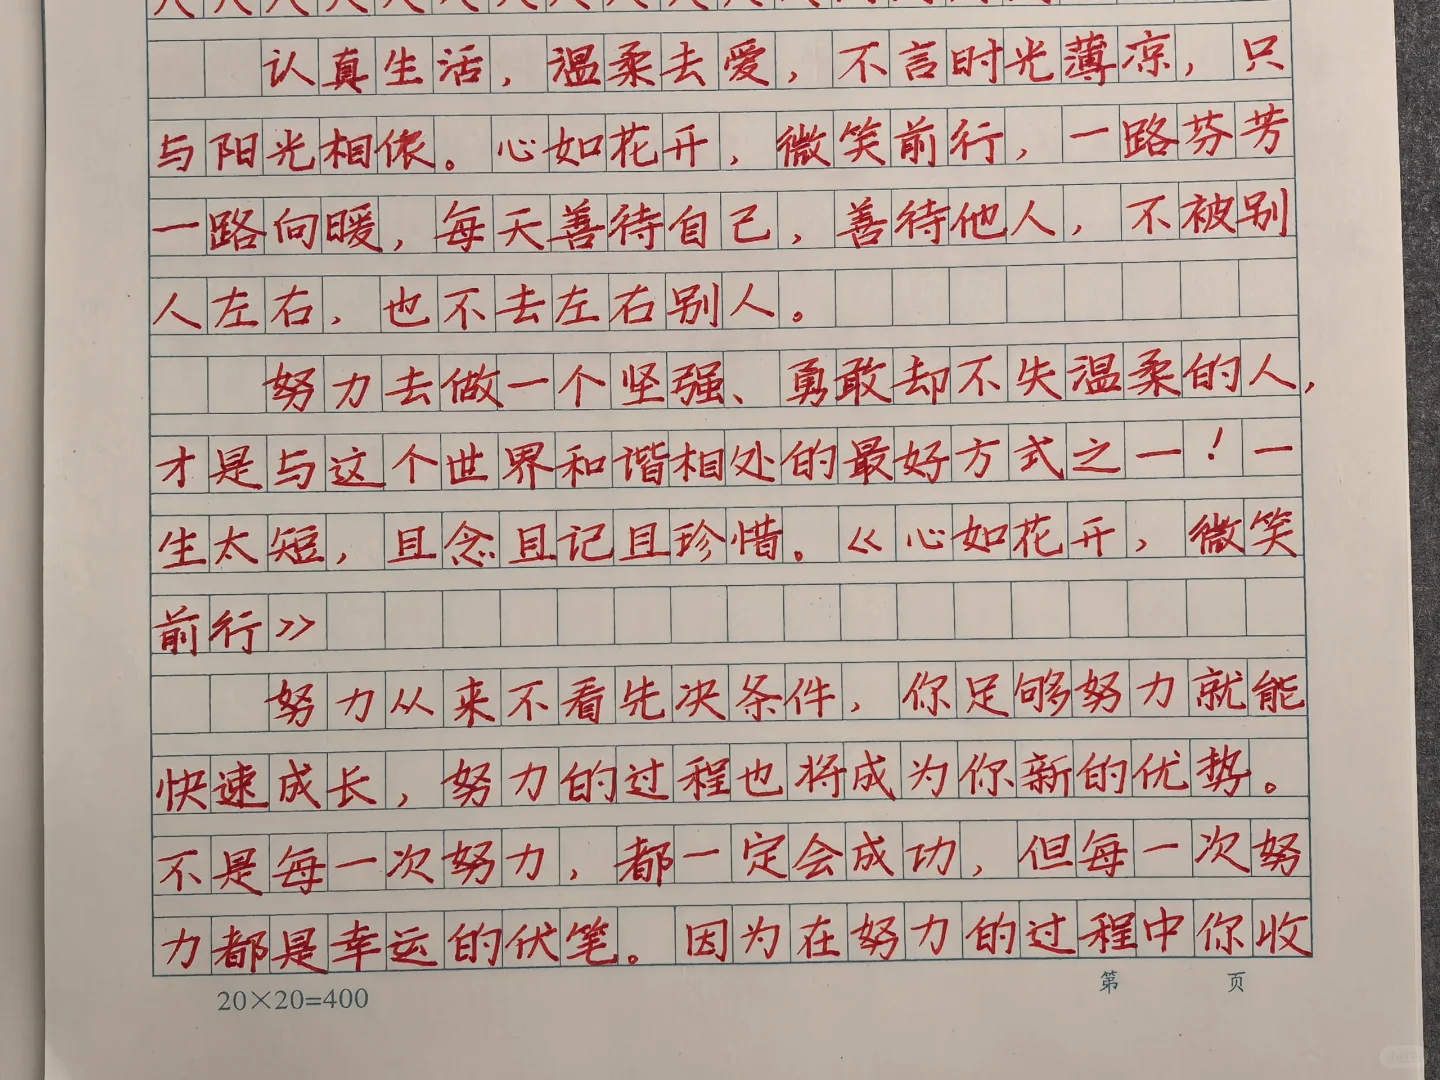 认真生活，温柔去爱，不言时光薄凉，只
与阳光相偎。心如花开，微笑前行，一路芬芳
一路向暖，每天善待自己，善待他人，不被别
人左右，也不去左右别人。
努力去做一个坚强、勇敢却不失温柔的人，
才是与这个世界和谐相处的最好方式之一！一
生太短，且念且记且珍惜。《心如花开，微笑
前行》
努力从来不看先决条件，你足够努力就能
快速成长，努力的过程也将成为你新的优势。
不是每一次努力，都一定会成功，但每一次努
力都是幸运的伏笔。因为在努力的过程中你收
20×20=400 第 页